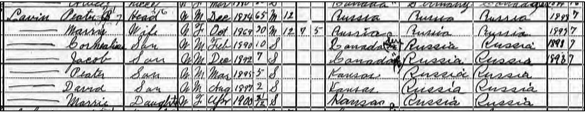 Canada Germany Canada
Lavin Peater Head W M Dec 1874 65 M 12 Russia Russia Russia 1893 7
Marry Wife W F Oct 1869 30 M 12 7 5 Russia Russia Russia 1893 7
Cornealius Son W M Feb 1890 10 S Canada Russia Russia 1893 7
Jacob Son W M Dec 1892 7 S Canada Russia Russia 1893 7
Peater Son W M Mar 1895 5 S Kansas Russia Russia
David Son W M Aug 1897 2 S Kansas Russia Russia
Marrie Daughter W F Apr 1900 S Kansas Russia Russia